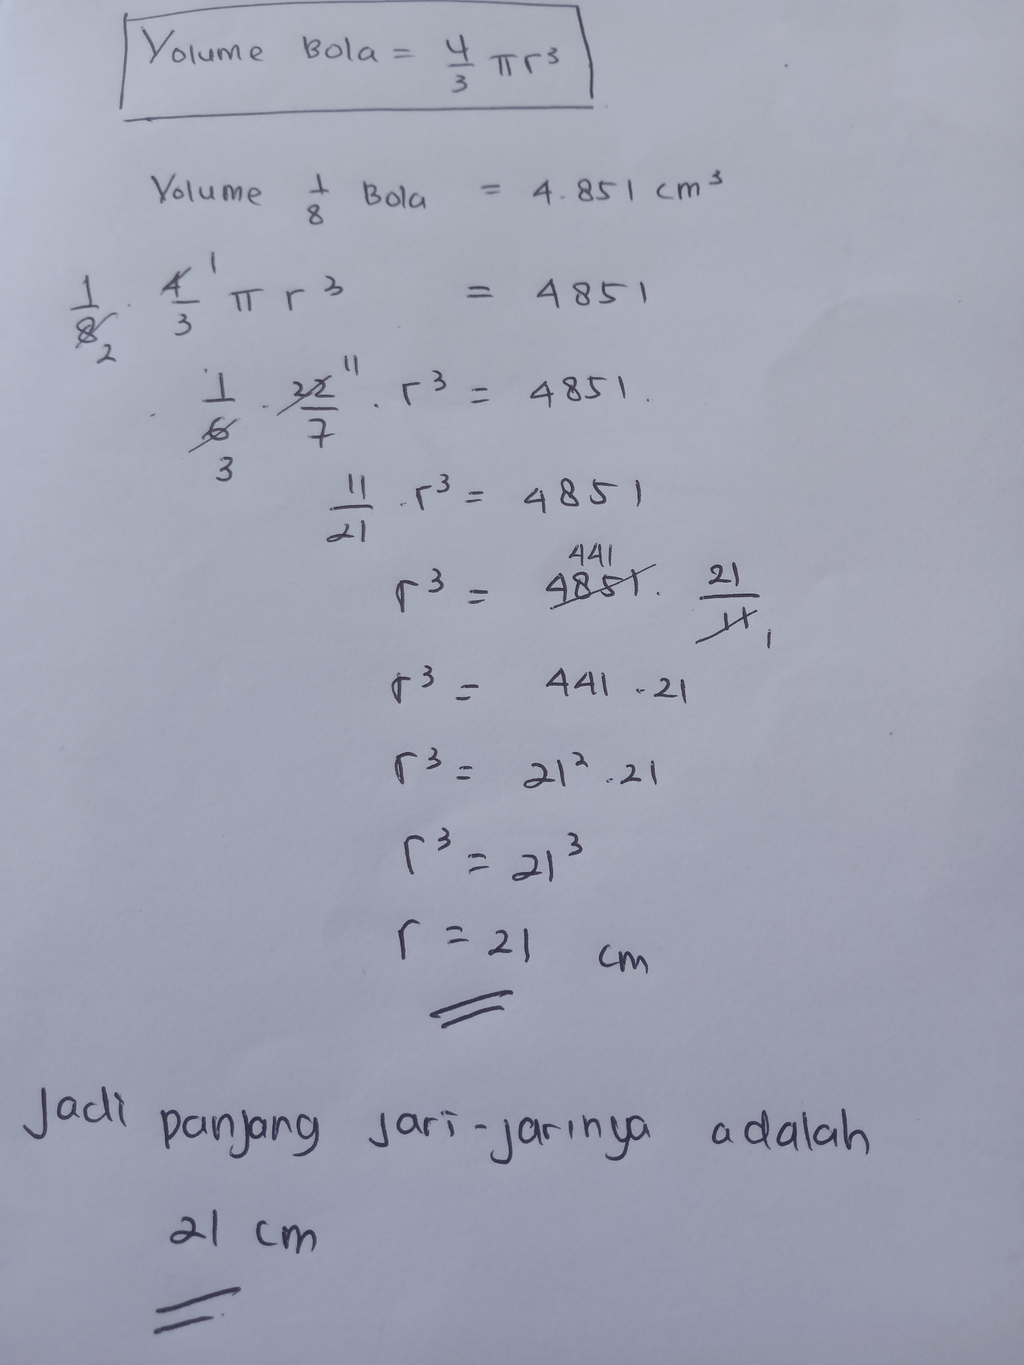 Volume Bola = 4/3 πr³
Volume 1/8 Bola = 4.851 cm³
1/8 2 . 4/3 1 π r³ = 4851
1/6 3 . 22/7 11 . r³ = 4851.
11/21 . r³ = 4851
r³ = 4851 441 . 21/11 1
r³ = 441 . 21
r³ = 21² . 21
r³ = 21³
r = 21 cm
Jadi panjang jari-jarinya adalah
21 cm